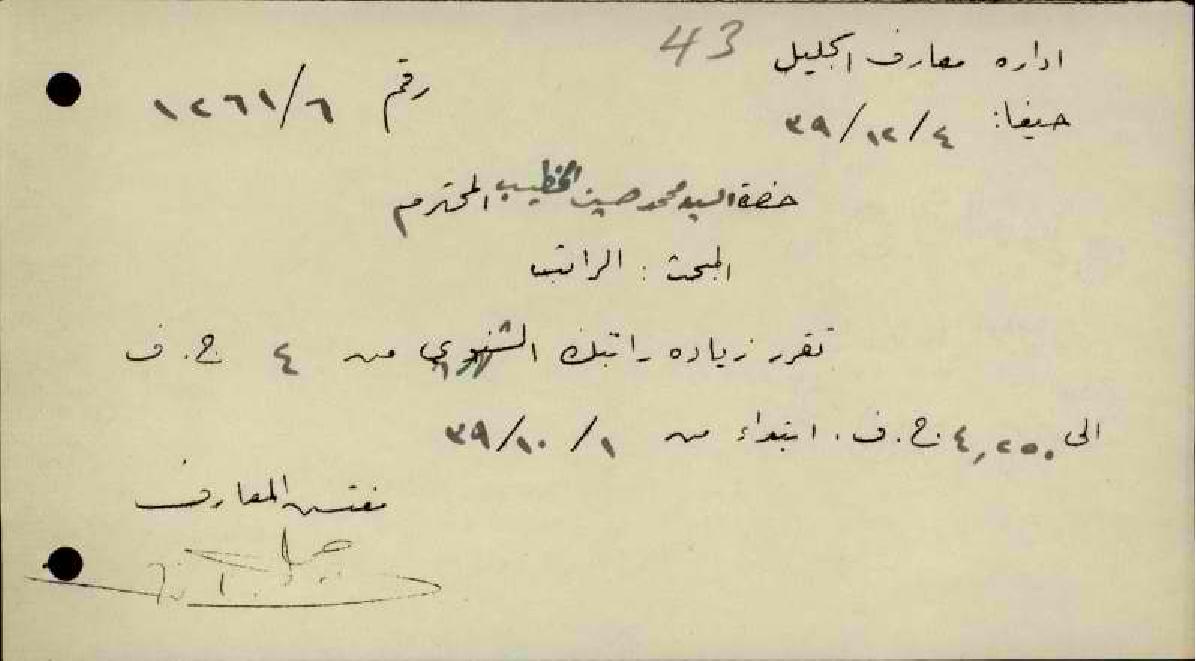 اداره معارف الجليل 43
حيفا: ٤/١٢/٣٩
رقم ٦/١٢٦١
حضرة السيد محمد حسين الخطيب المحترم
المبحث : الراتب
تقرر زياده راتبك الشهري من ٤ ج. ف
الى ٤,٢٥٠ ج. ف. ابتداء من ١/١٠/٣٩
مفتش المعارف